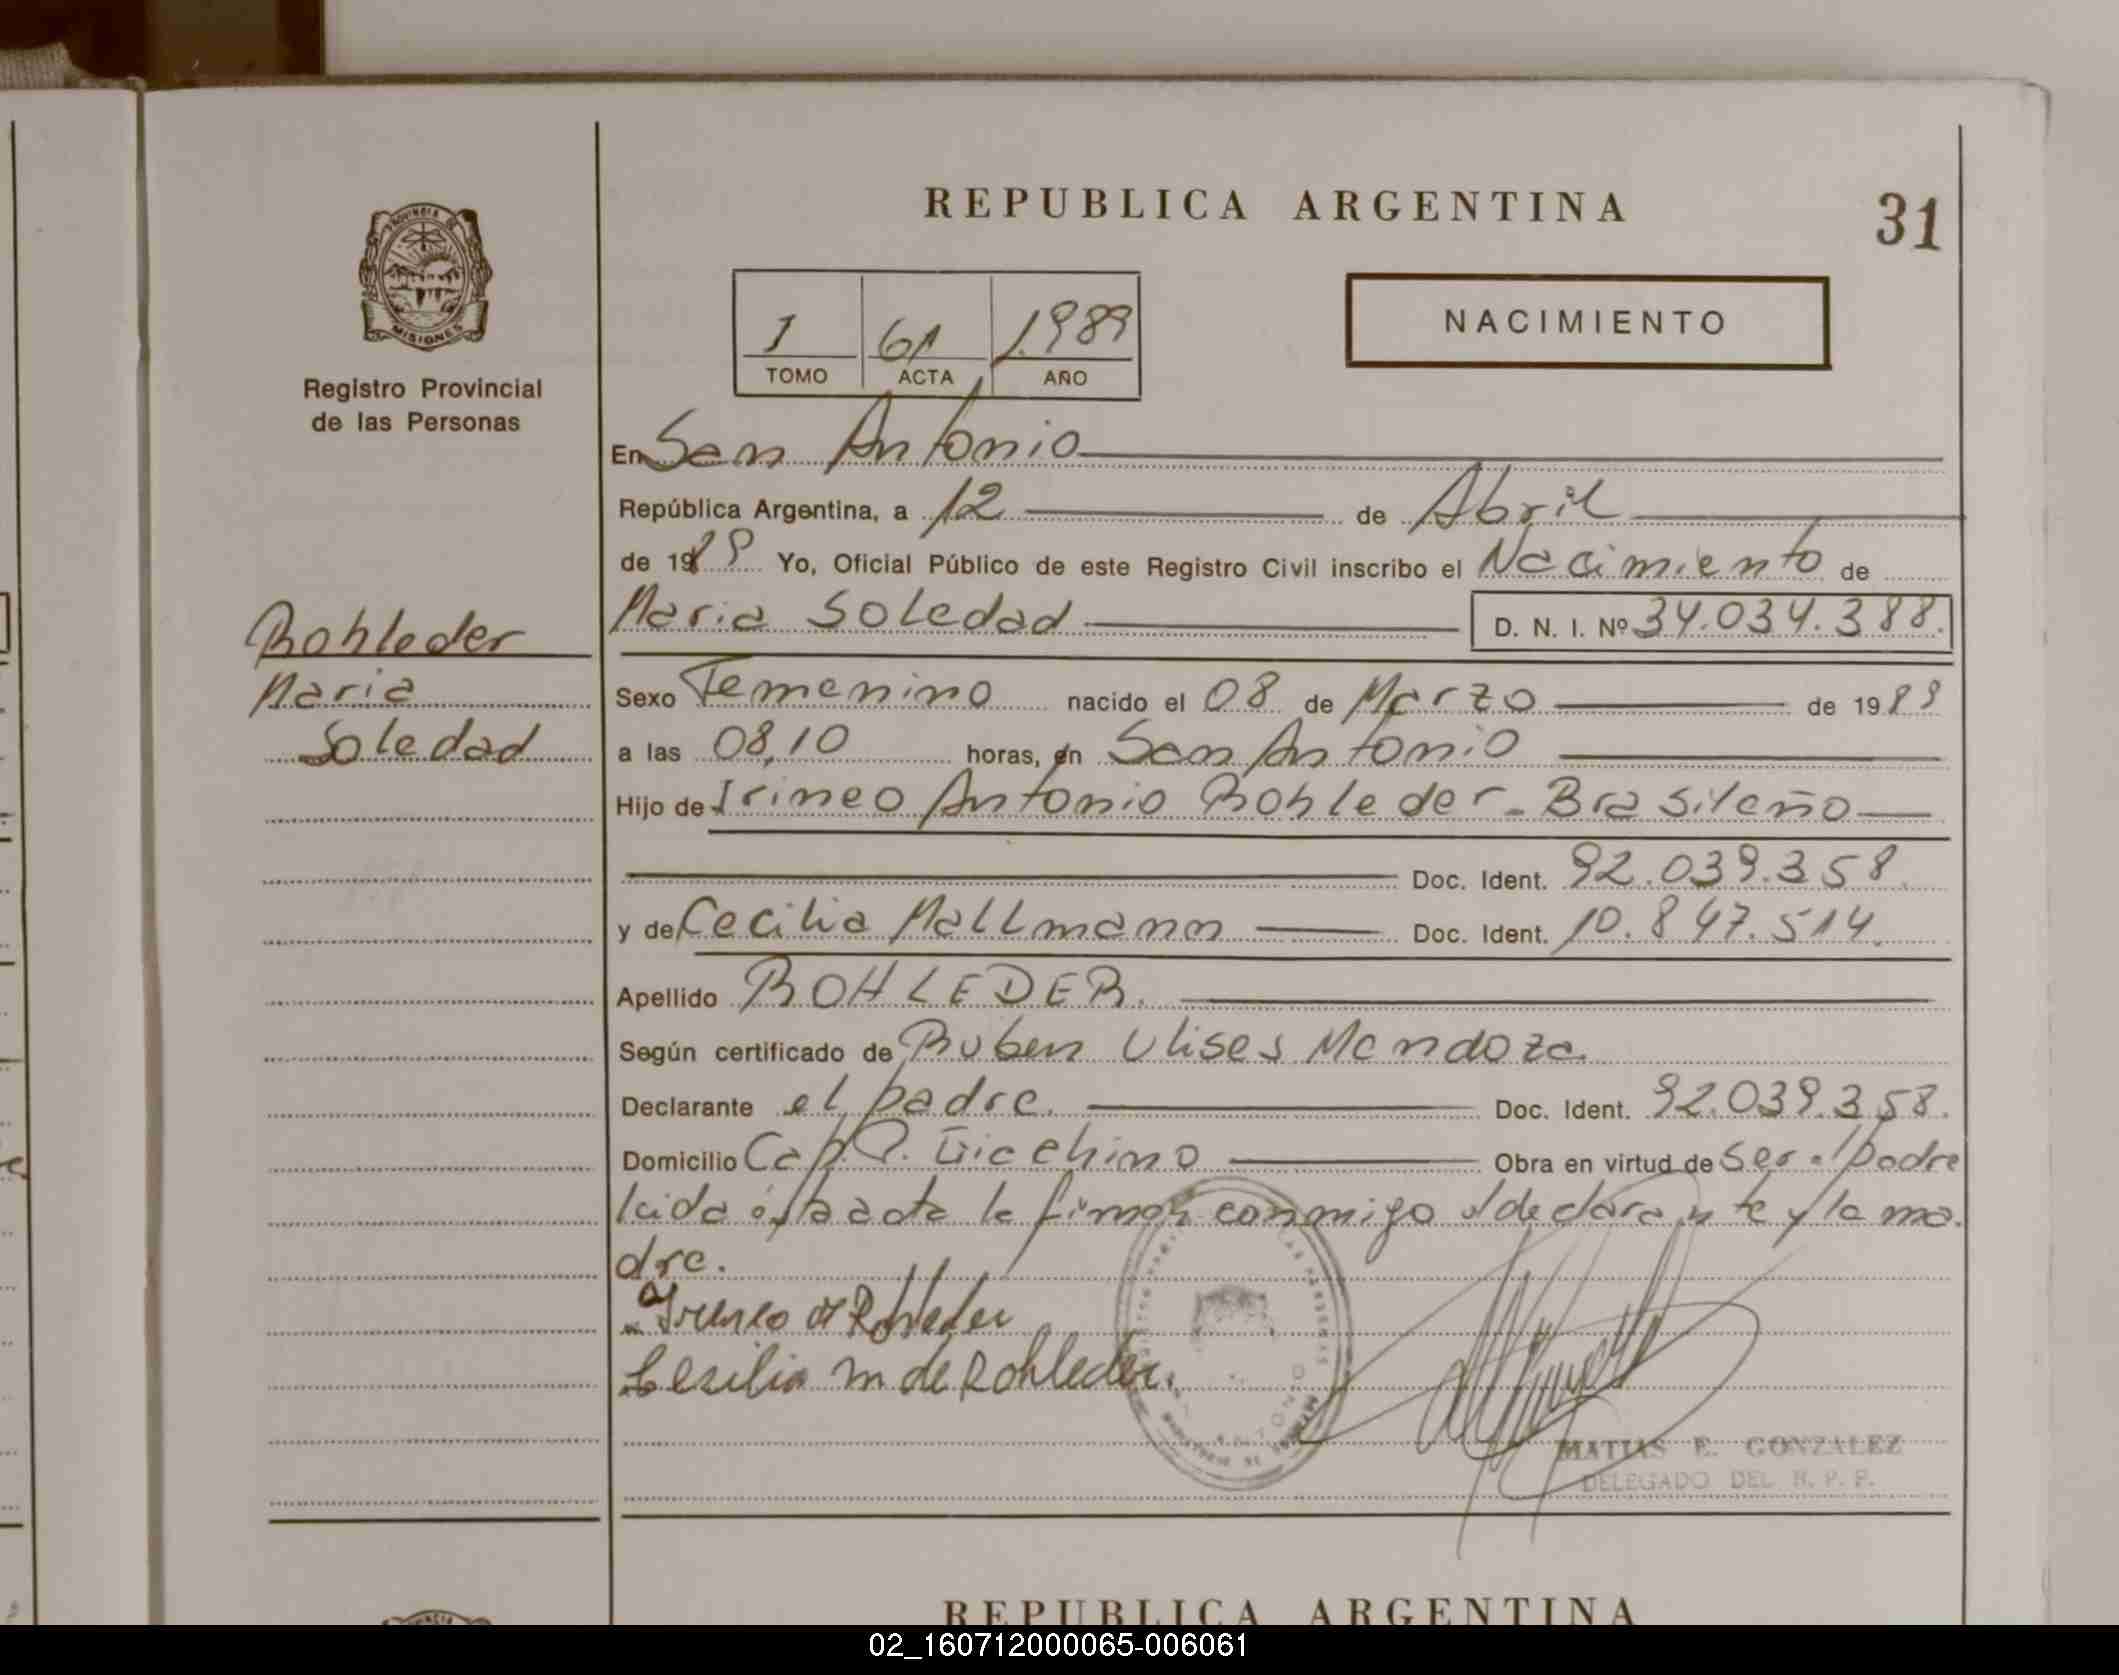 REPUBLICA ARGENTINA
31
PROVINCIA DE
MISIONES
Registro Provincial
de las Personas
1 61 1.989
TOMO ACTA AÑO
NACIMIENTO
En San Antonio
República Argentina, a 12 de Abril
de 1989 Yo, Oficial Público de este Registro Civil inscribo el Nacimiento de
Maria Soledad D. N. I. Nº 34.034.388.
Rohleder
Maria
Soledad
Sexo Femenino nacido el 08 de Marzo de 1989
a las 08,10 horas, en San Antonio
Hijo de Irineo Antonio Rohleder - Brasileño
Doc. Ident. 92.039.358.
y de Cecilia Mallmann Doc. Ident. 10.847.514.
Apellido ROHLEDER.
Según certificado de Ruben Ulises Mendoza.
Declarante el padre. Doc. Ident. 92.039.358.
Domicilio Cap. Obra en virtud de ser el padre
leida ésta acta la firman conmigo el declarante y la ma.
dre.
Irineo A Rohleder
Cesilia M de Rohleder.
MATIAS E. GONZALEZ
DELEGADO DEL R. P. P.
REPUBLICA ARGENTINA
02_160712000065-006061